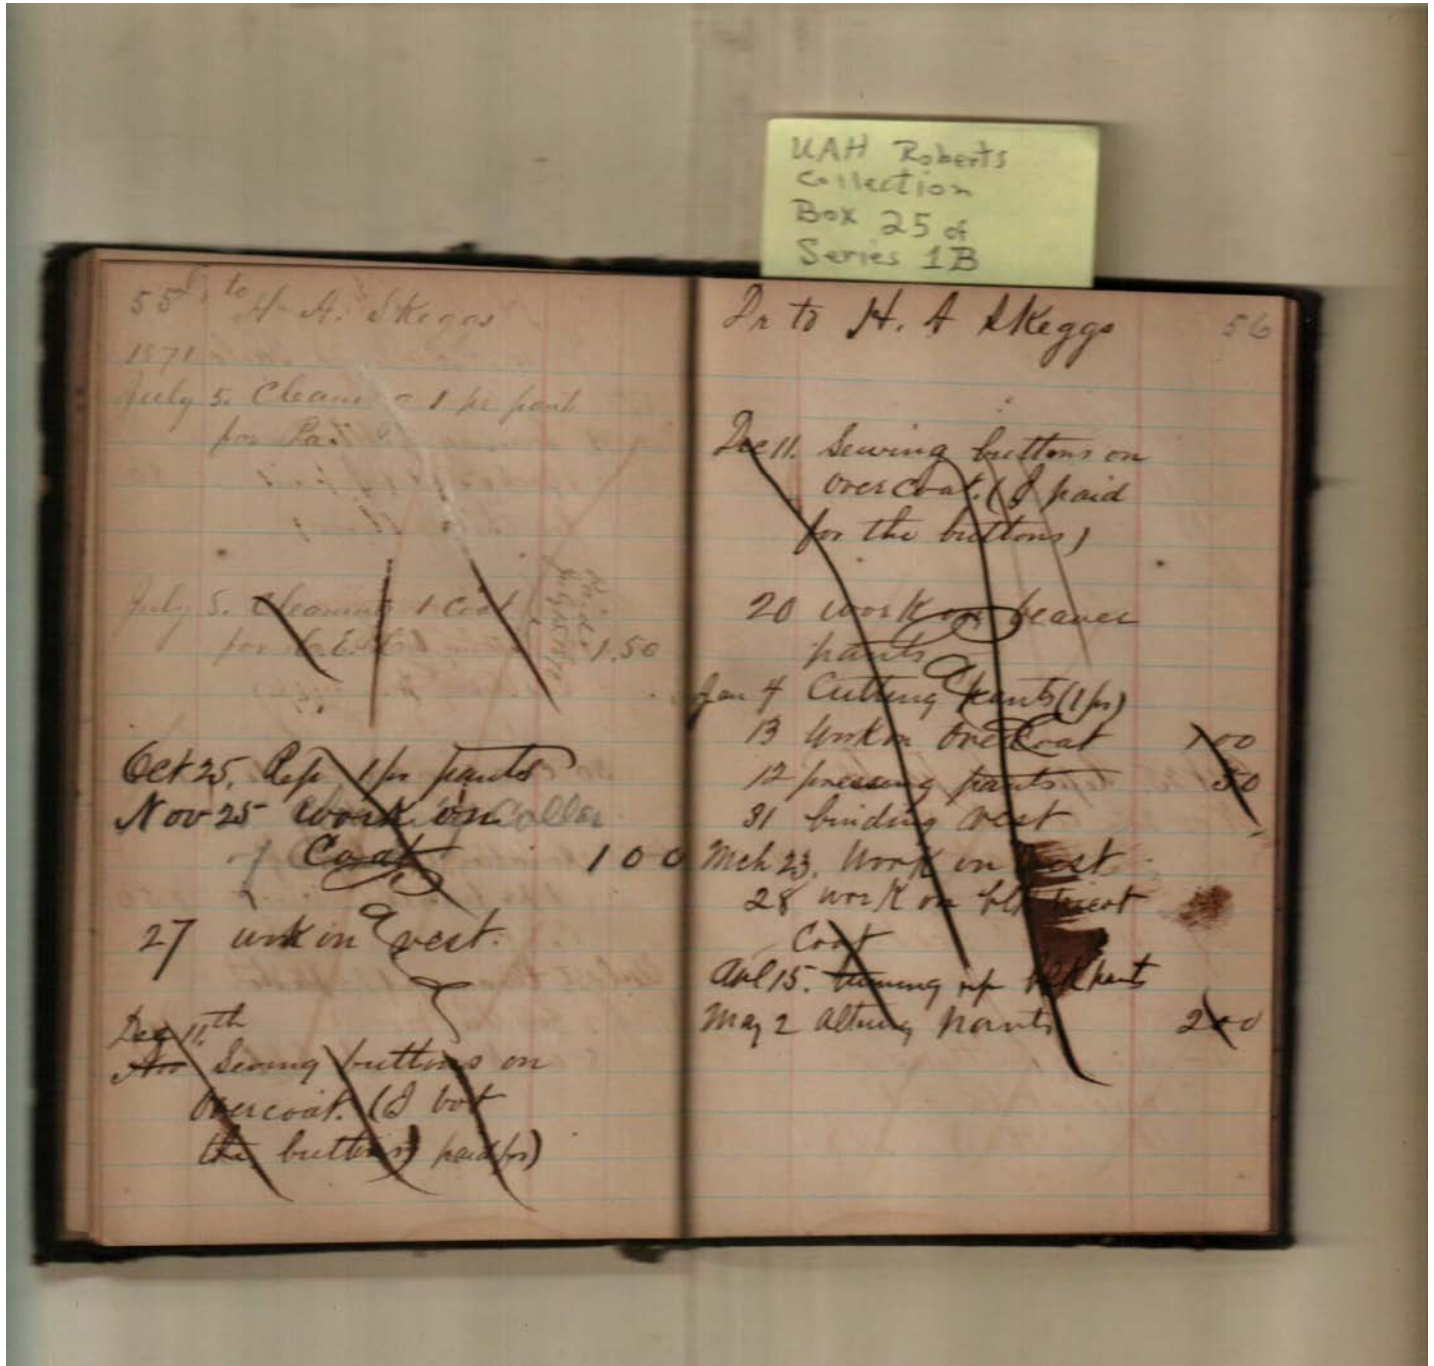 UAH Roberts
Collection
Box 25 of
Series 1B
55 Dr to H. A. Skeggs
1871
July 5. Cleaning 1 pr pants
for Pa.
July 5. Cleaning 1 Coat
for 1.50
Oct 25. Rep 1 pr pants
Nov 25 work on Collar
of Coat 1 00
27 work on a vest.
Dec 11th
Nov Sewing buttons on
overcoat. (I bot
the buttons) paid for)
Dr to H. A Skeggs 56
Dec 11. Sewing buttons on
overcoat. (I paid
for the buttons)
20 work on beaver
pants
Jan 4 Cutting pants (1 pr)
13 work on overcoat 1 00
12 pressing pants 50
31 binding vest
Mch 23. Work on vest
28 work on blk tricot
Coat
Apl 15. up blk pants
May 2 altering pants 2 00